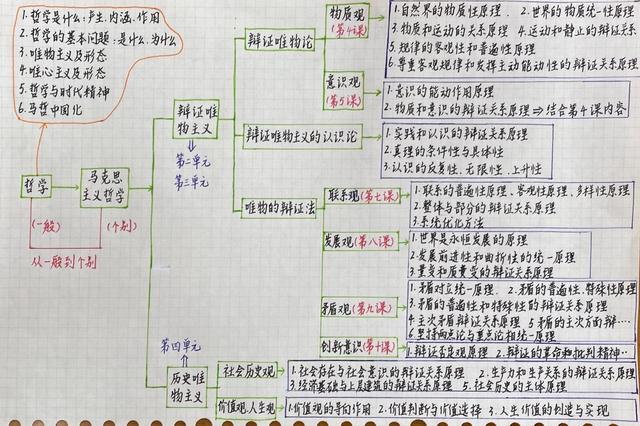 1.哲学是什么:产生、内涵、作用
2.哲学的基本问题:是什么.为什么
3.唯物主义及形态
4.唯心主义及形态
5.哲学与时代精神
6.马哲中国化
哲学
马克思主义哲学
(一般)
(个别)
从一般到个别
辩证唯物主义
第二单元
第三单元
辩证唯物论
物质观
(第4课)
1.自然界的物质性原理. 2.世界的物质统一性原理
3.物质和运动的关系原理 4.运动和静止的辩证关系
5.规律的客观性和普遍性原理
6.尊重客观规律和发挥主动能动性的辩证关系原理
意识观
(第5课)
1.意识的能动作用原理
2.物质和意识的辩证关系原理⇒结合第4课内容
辩证唯物主义的认识论
1.实践和认识的辩证关系原理
2.真理的条件性与具体性
3.认识的反复性、无限性、上升性
唯物的辩证法
联系观(第七课)
1.联系的普遍性原理、客观性原理、多样性原理
2.整体与部分的辩证关系原理
3.系统优化方法
发展观(第八课)
1.世界是永恒发展的原理
2.发展前进性和曲折性的统一原理
3.量变和质量变的辩证关系原理
矛盾观(第九课)
1.矛盾对立统一原理. 2.矛盾的普遍性.特殊性原理
3.矛盾的普遍性和特殊性的辩证关系原理
4.主次矛盾辩证关系原理 5矛盾的主次方面辩…
6.坚持两点论与重点论相统一原理
创新意识(第十课)
1.辩证否定观原理 2.辩证的革命和批判精神…
第四单元
历史唯物主义
社会历史观
1.社会存在与社会意识的辩证关系原理 2.生产力和生产关系的辩证关系原理
3.经济基础与上层建筑的辩证关系原理 5.社会历史的主体原理
价值观.人生观
1.价值观的导向作用 2.价值判断与价值选择 3.人生价值的创造与实现